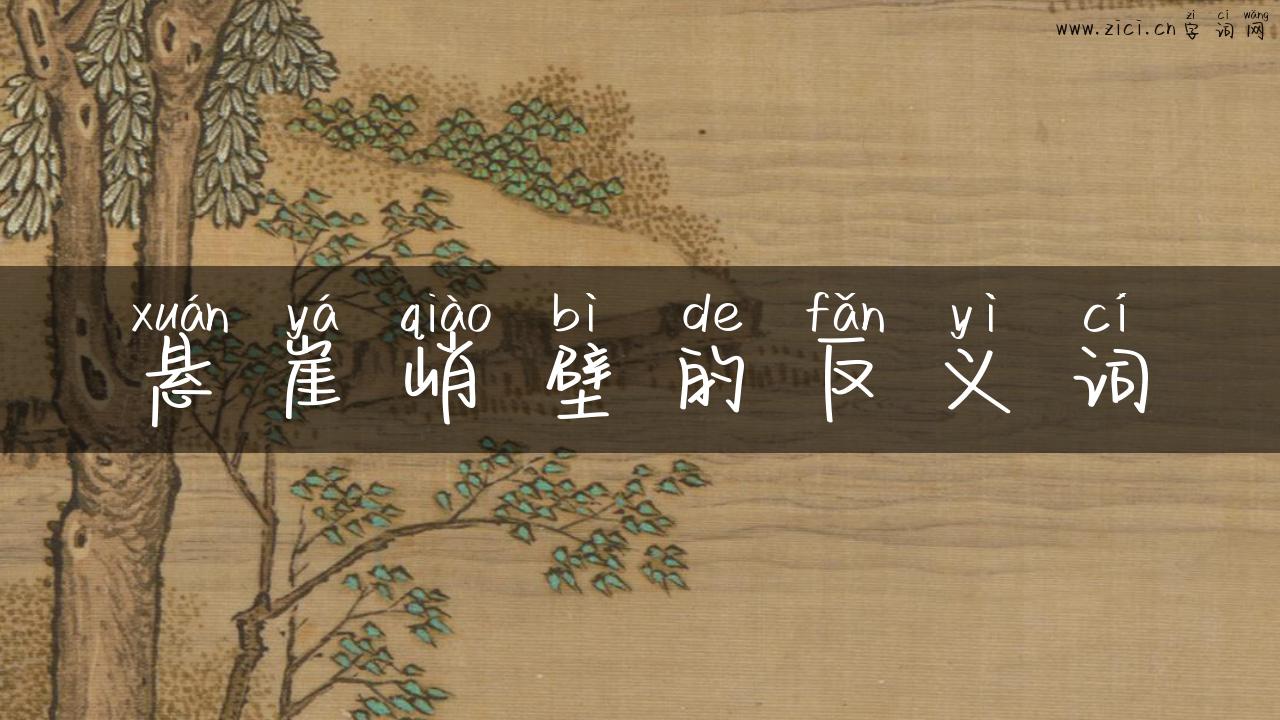 www.zici.cn
zì cí wǎng
字词网
xuán yá qiào bì de fǎn yì cí
悬崖峭壁的反义词